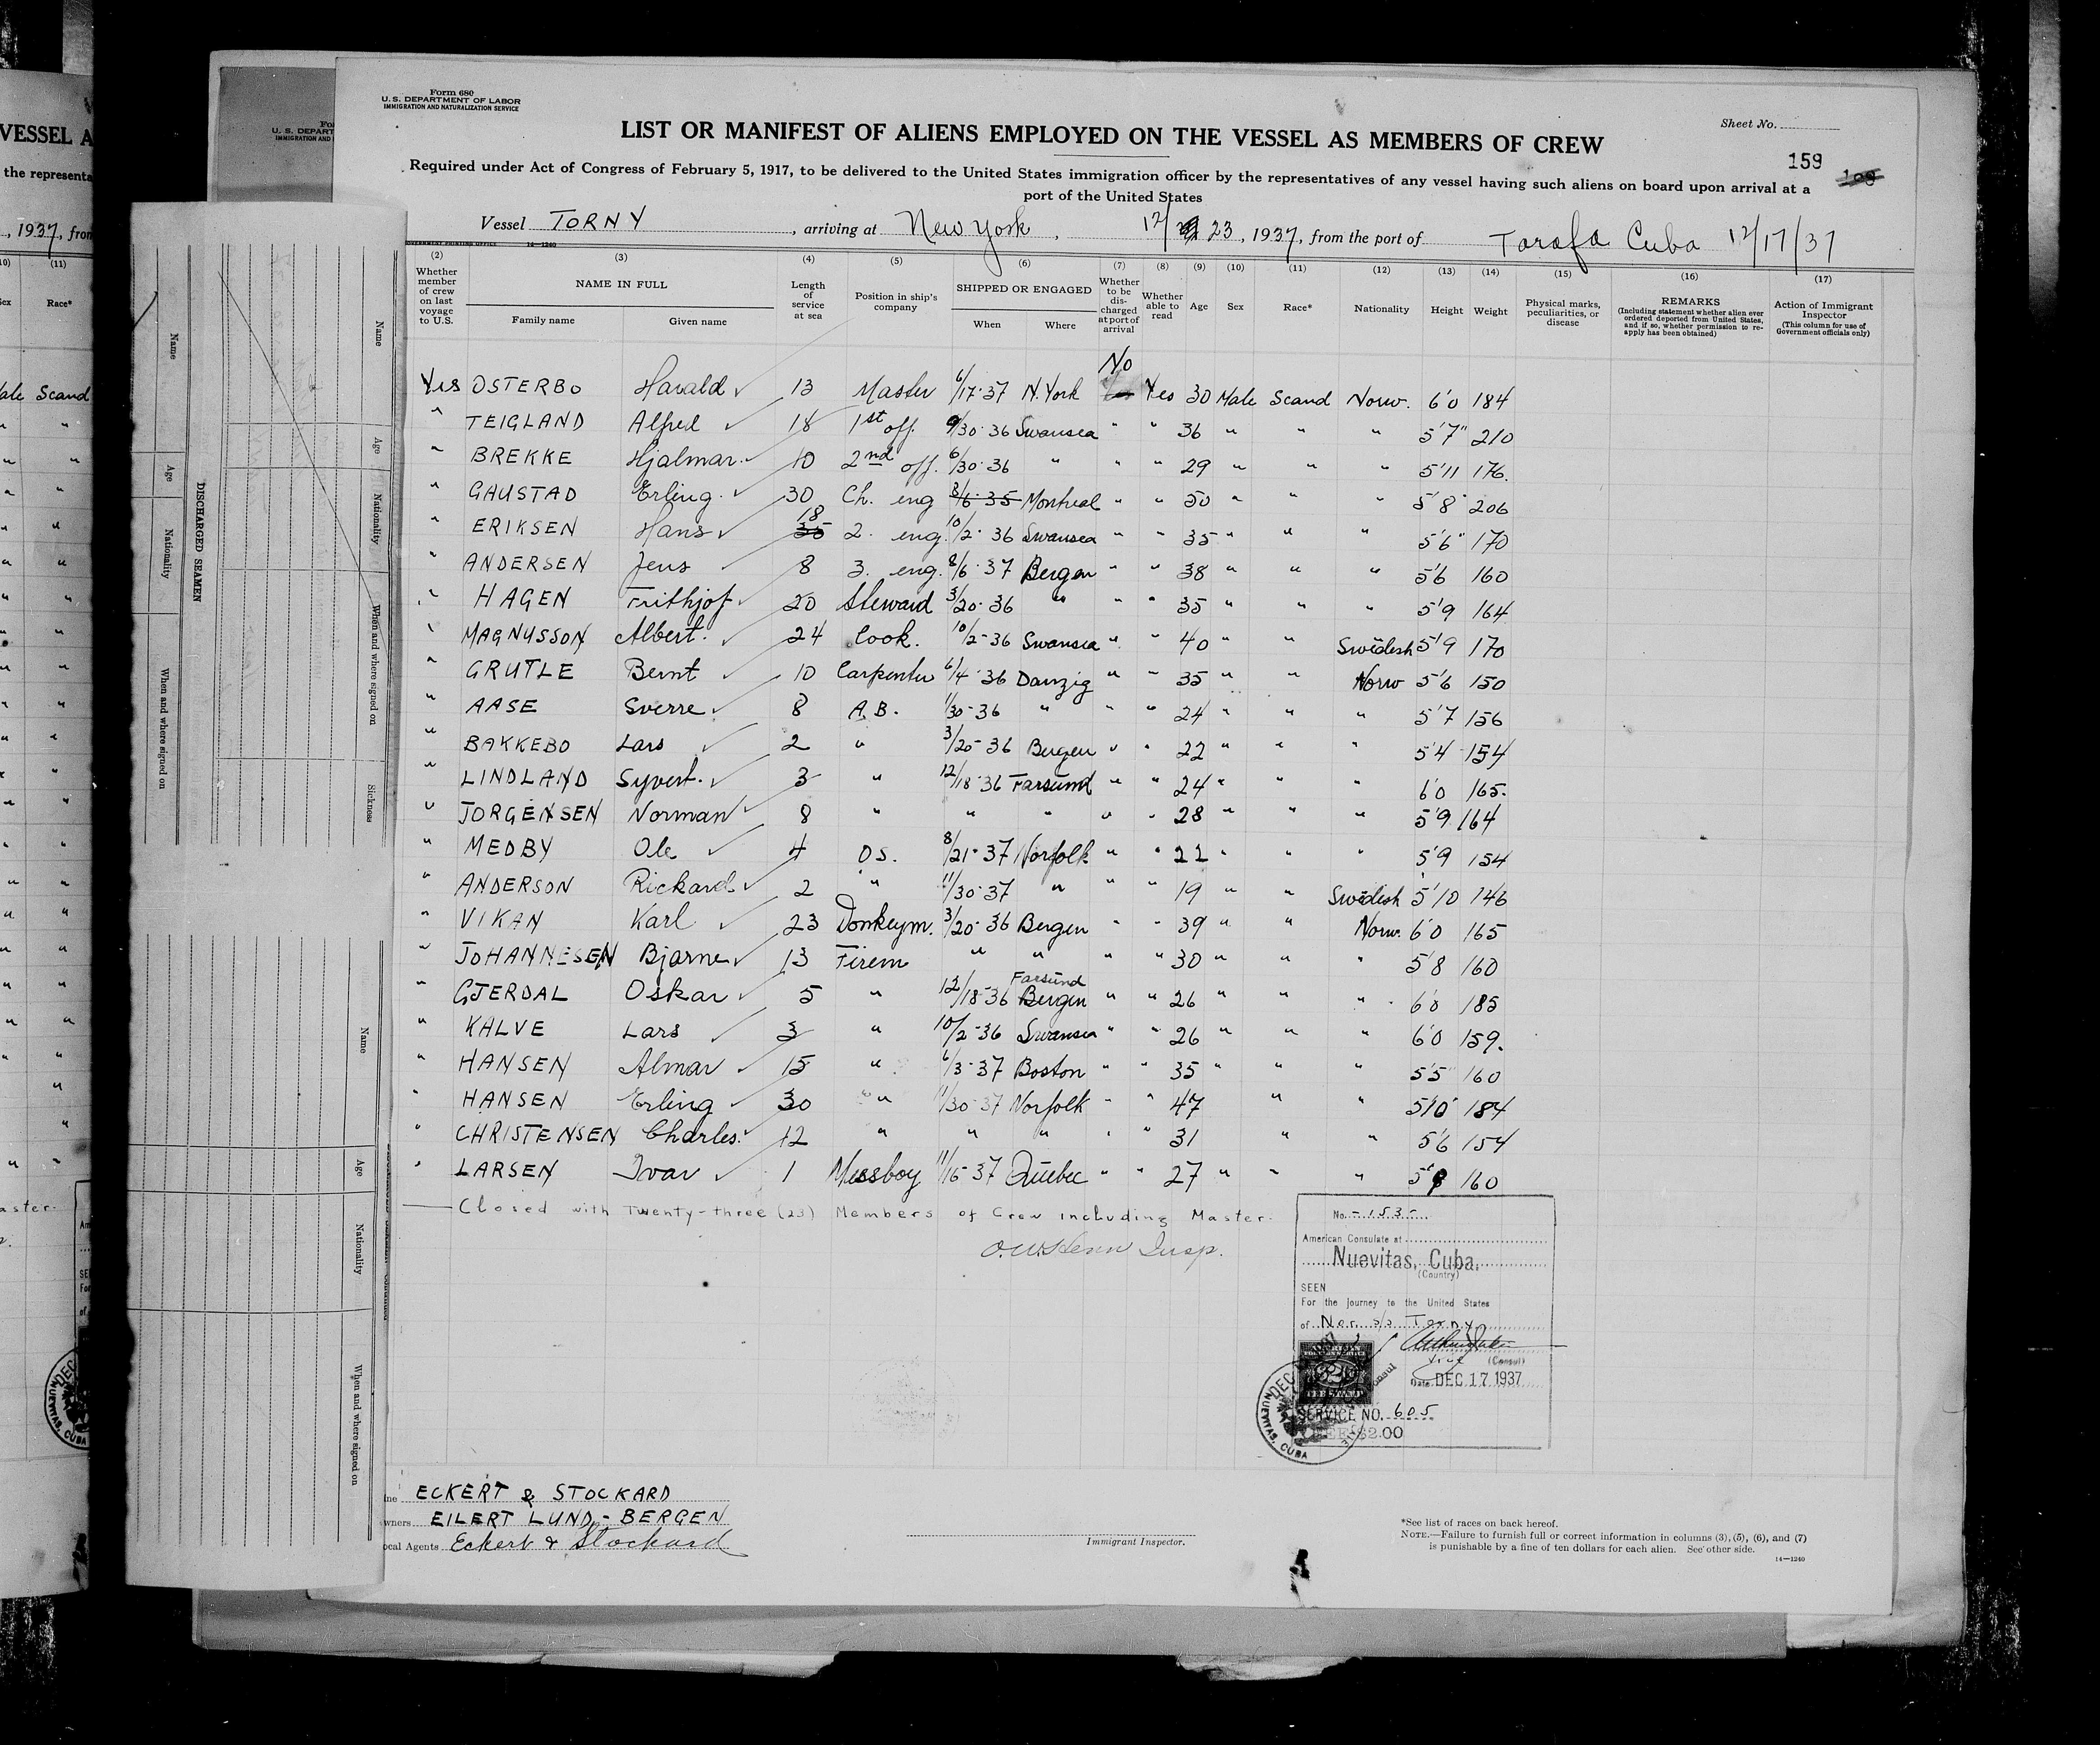 Form 680
U. S. DEPARTMENT OF LABOR
IMMIGRATION AND NATURALIZATION SERVICE
LIST OR MANIFEST OF ALIENS EMPLOYED ON THE VESSEL AS MEMBERS OF CREW
Sheet No.
159
Required under Act of Congress of February 5, 1917, to be delivered to the United States immigration officer by the representatives of any vessel having such aliens on board upon arrival at a
port of the United States
Vessel TORNY, arriving at New York, 12/23, 1937, from the port of Tarafa Cuba 12/17/37
14—1240
(2) (3) (4) (5) (6) (7) (8) (9) (10) (11) (12) (13) (14) (15) (16) (17)
Whether member of crew on last voyage to U.S. NAME IN FULL Family name Given name Length of service at sea Position in ship's company SHIPPED OR ENGAGED When Where Whether to be discharged at port of arrival Whether able to read Age Sex Race* Nationality Height Weight Physical marks, peculiarities, or disease REMARKS (Including statement whether alien ever ordered deported from United States, and if so, whether permission to reapply has been obtained) Action of Immigrant Inspector (This column for use of Government officials only)
No
Yes OSTERBO Harald 13 Master 6/17-37 N.York Yes 30 Male Scand Norw. 6'0 184
" TEIGLAND Alfred 18 1st off. 9/30-36 Swansea " " 36 " " " 5'7" 210
" BREKKE Hjalmar 10 2nd off. 6/30-36 " " " 29 " " " 5'11 176.
" GAUSTAD Erling 30 Ch. eng 8/6-35 Montreal " " 50 " " " 5'8" 206
" ERIKSEN Hans 18 2. eng. 10/2-36 Swansea " " 35 " " " 5'6" 170
" ANDERSEN Jens 8 3. eng. 8/6-37 Bergen " " 38 " " " 5'6 160
" HAGEN Frithjof 20 Steward 3/20-36 " " " 35 " " " 5'9 164
" MAGNUSSON Albert. 24 Cook. 10/2-36 Swansea " " 40 " " Swedish 5'9 170
" GRUTLE Bernt 10 Carpenter 6/4-36 Danzig " " 35 " " Norw 5'6 150
" AASE Sverre 8 A.B. 1/30-36 " " " 24 " " " 5'7 156
" BAKKEBO Lars 2 " 3/20-36 Bergen " " 22 " " " 5'4 154
" LINDLAND Syvert. 3 " 12/18-36 Farsund " " 24 " " " 6'0 165.
" JORGENSEN Norman 8 " " " " " 28 " " " 5'9 164
" MEDBY Ole 4 O.S. 8/21-37 Norfolk " " 22 " " " 5'9 154
" ANDERSON Rickard 2 " 11/30-37 " " " 19 " " Swedish 5'10 146
" VIKAN Karl 23 Donkeym. 3/20-36 Bergen " " 39 " " Norw. 6'0 165
" JOHANNESEN Bjarne 13 Firem " " " " 30 " " " 5'8 160
Farsund
" GJERDAL Oskar 5 " 12/18-36 Bergen " " 26 " " " 6'0 185
" KALVE Lars 3 " 10/2-36 Swansea " " 26 " " " 6'0 159.
" HANSEN Almar 15 " 6/3-37 Boston " " 35 " " " 5'5" 160
" HANSEN Erling 30 " 11/30-37 Norfolk " " 47 " " 5'10" 184
" CHRISTENSEN Charles. 12 " " " " " 31 " " 5'6 154
" LARSEN Ivar 1 Messboy 11/15-37 Quebec " " 27 " " " 160
Closed with Twenty-three (23) Members of Crew including Master.
Insp.
No. -153-
American Consulate at
Nuevitas, Cuba.
(Country)
SEEN
For the journey to the United States
of Nor. s/s Torny
Vice (Consul)
Date DEC 17 1937
SERVICE NO. 605
FEE $2.00
NUEVITAS, CUBA
ECKERT & STOCKARD
EILERT LUND - BERGEN
ocal Agents Eckert & Stockard
Immigrant Inspector.
*See list of races on back hereof.
NOTE.—Failure to furnish full or correct information in columns (3), (5), (6), and (7)
is punishable by a fine of ten dollars for each alien. See other side.
14—1240
DISCHARGED SEAMEN
Name
Age
Nationality
When and where signed on
Sickness
Name
Age
Nationality
When and where signed on
Name
Age
Nationality
When and where signed on
VESSEL A
the representa
, 1937, from
(11)
Race*
Scand